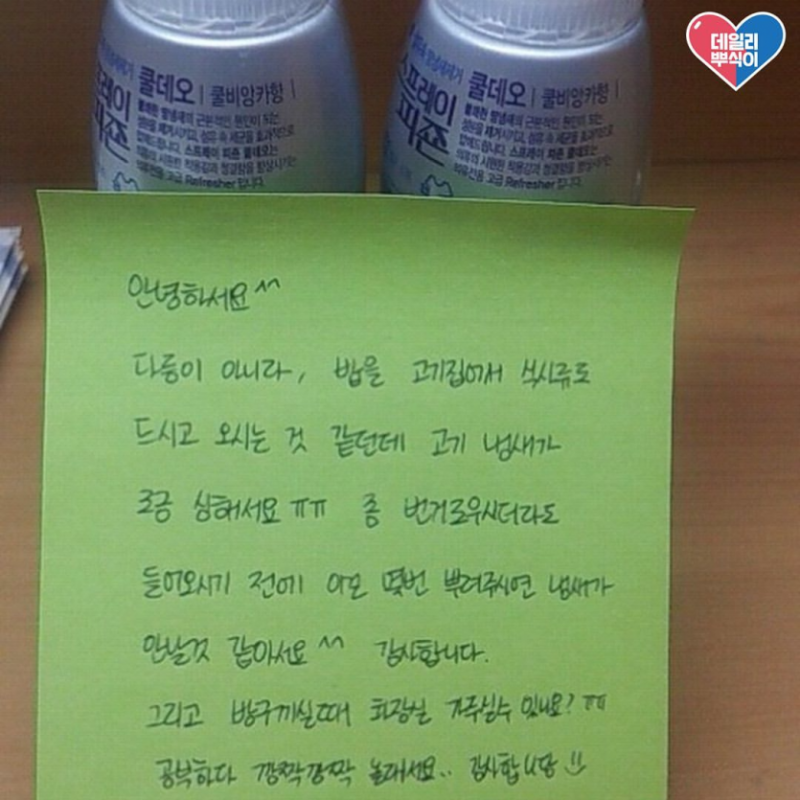 데일리
뿌식이
쿨데오 | 쿨비앙카향 |
쿨데오 | 쿨비앙카향 |
스프레이
피죤
안녕하세요^^
다름이 아니라, 밥을 고기집에서 식사류로
드시고 오시는 것 같던데 고기 냄새가
조금 심해서요 ㅠㅠ 좀 번거로우시더라도
들어오시기 전에 이모 몇번 뿌려주시면 냄새가
안날것 같아서요^^ 감사합니다.
그리고 방구끼실때 화장실 가주실수 있나요? ㅠ
공부하다 깜짝깜짝 놀래서요.. 감사합니당